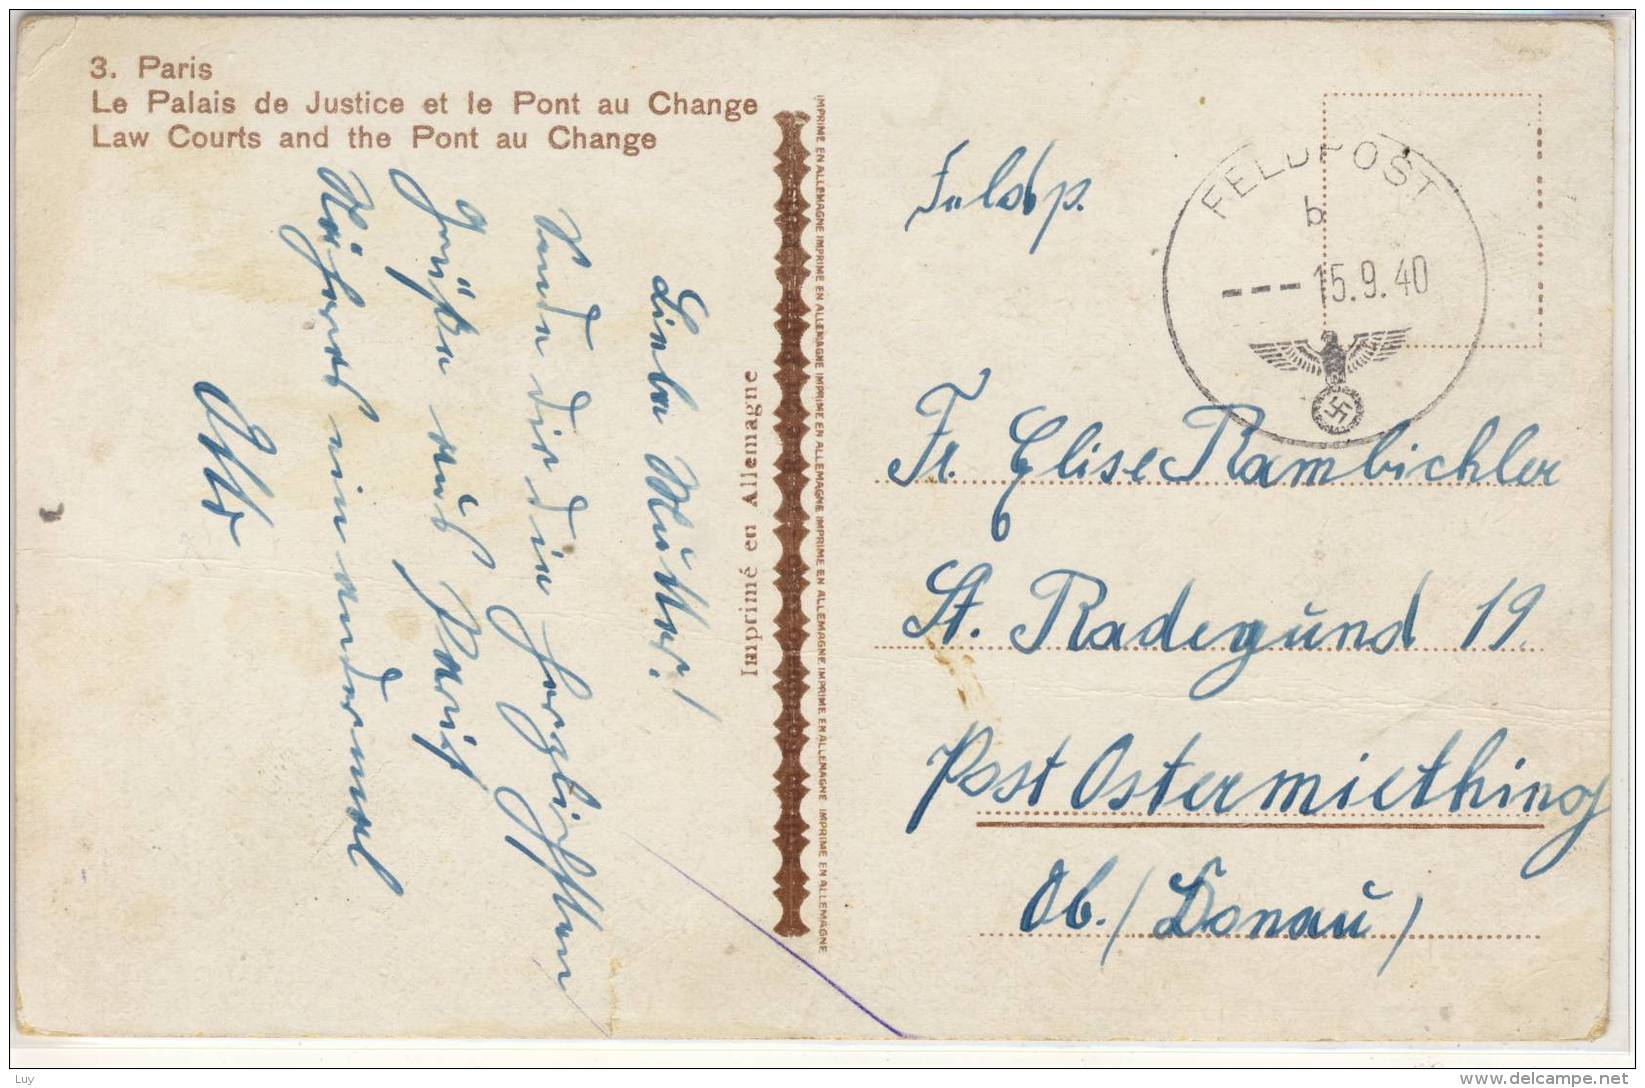 3. Paris
Le Palais de Justice et le Pont au Change
Law Courts and the Pont au Change
Liebe Mutter!
Sende dir die herzlichsten
Grüße aus Paris
Näheres ein andermal
Otto
Imprimé en Allemagne
IMPRIME EN ALLEMAGNE IMPRIME EN ALLEMAGNE IMPRIME EN ALLEMAGNE IMPRIME EN ALLEMAGNE IMPRIME EN ALLEMAGNE IMPRIME EN ALLEMAGNE IMPRIME EN ALLEMAGNE IMPRIME EN ALLEMAGNE
Feldp.
FELDPOST
b
--- 15.9.40
Fr. Elise Rambichler
St. Radegund 19.
Post Ostermiething
Ob. / Donau /
Luy
delcampe.net